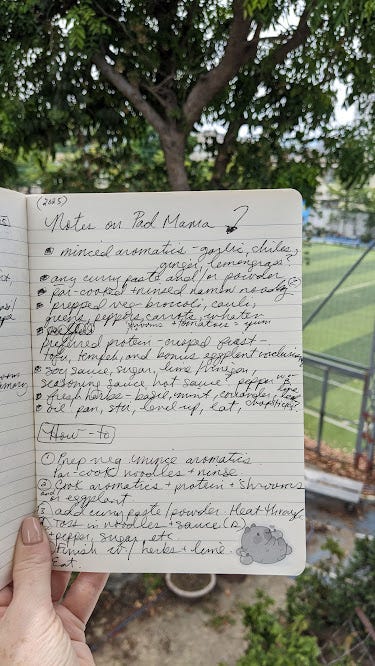 (2025)
Notes on Pad Mama ?
minced aromatics - garlic, chiles,
ginger, lemongrass?
any curry paste and/or powder
par-cooked + rinsed ramen noods
prepped veg - broccoli, cauli,
greens, peppers, carrots, whatev
shrooms + tomatoes = yum
preferred protein - crisped yeast -
tofu, tempeh, and bonus eggplant
soy sauce, sugar, lime/vinegar,
seasoning sauce, hot sauce? pepper
fresh herbs - basil, mint, coriander,
oil, pan, stir, level-up, eat, chopsticks.
How-to
① Prep veg, mince aromatics
Par-cook noodles + rinse
② Cook aromatics + protein + shrooms
and/or eggplant
③ add curry paste/powder. Heat through.
Toss in noodles + sauce(s)
+ pepper, sugar, etc.
Finish w/ herbs + lime.
Eat.